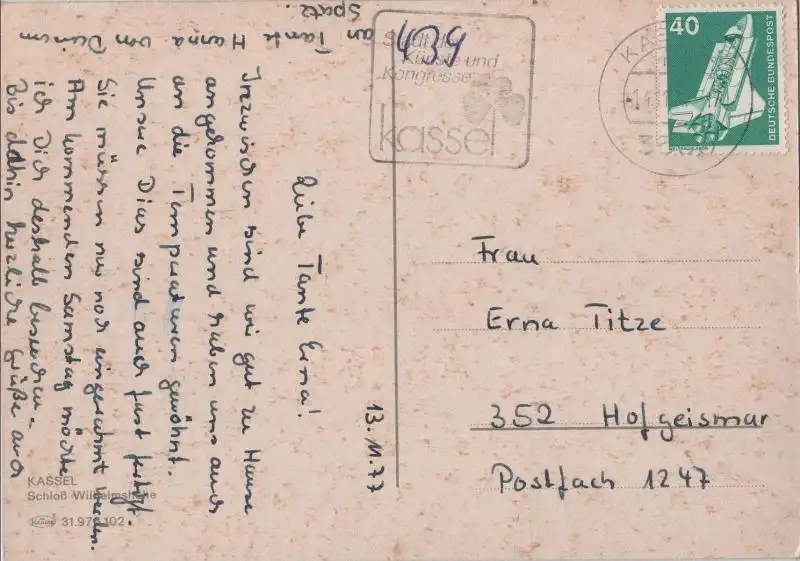 13.11.77
Liebe Tante Erna!
Inzwischen sind wir gut zu Hause
angekommen und haben uns auch
an die Temperaturen gewöhnt.
Unsre Dias sind auch fast fertig.
Sie müssen nur noch eingerahmt werden.
Am kommenden Samstag möchte
ich Dich deshalb besuchen.
Bis dahin herzliche Grüße auch
an Tante Hanna von Deinem
Spatz.
439
Stadt der
Künste und
Kongresse
kassel
40
DEUTSCHE BUNDESPOST
Frau
Erna Titze
352 Hofgeismar
Postfach 1247
KASSEL
Schloß Wilhelmshöhe